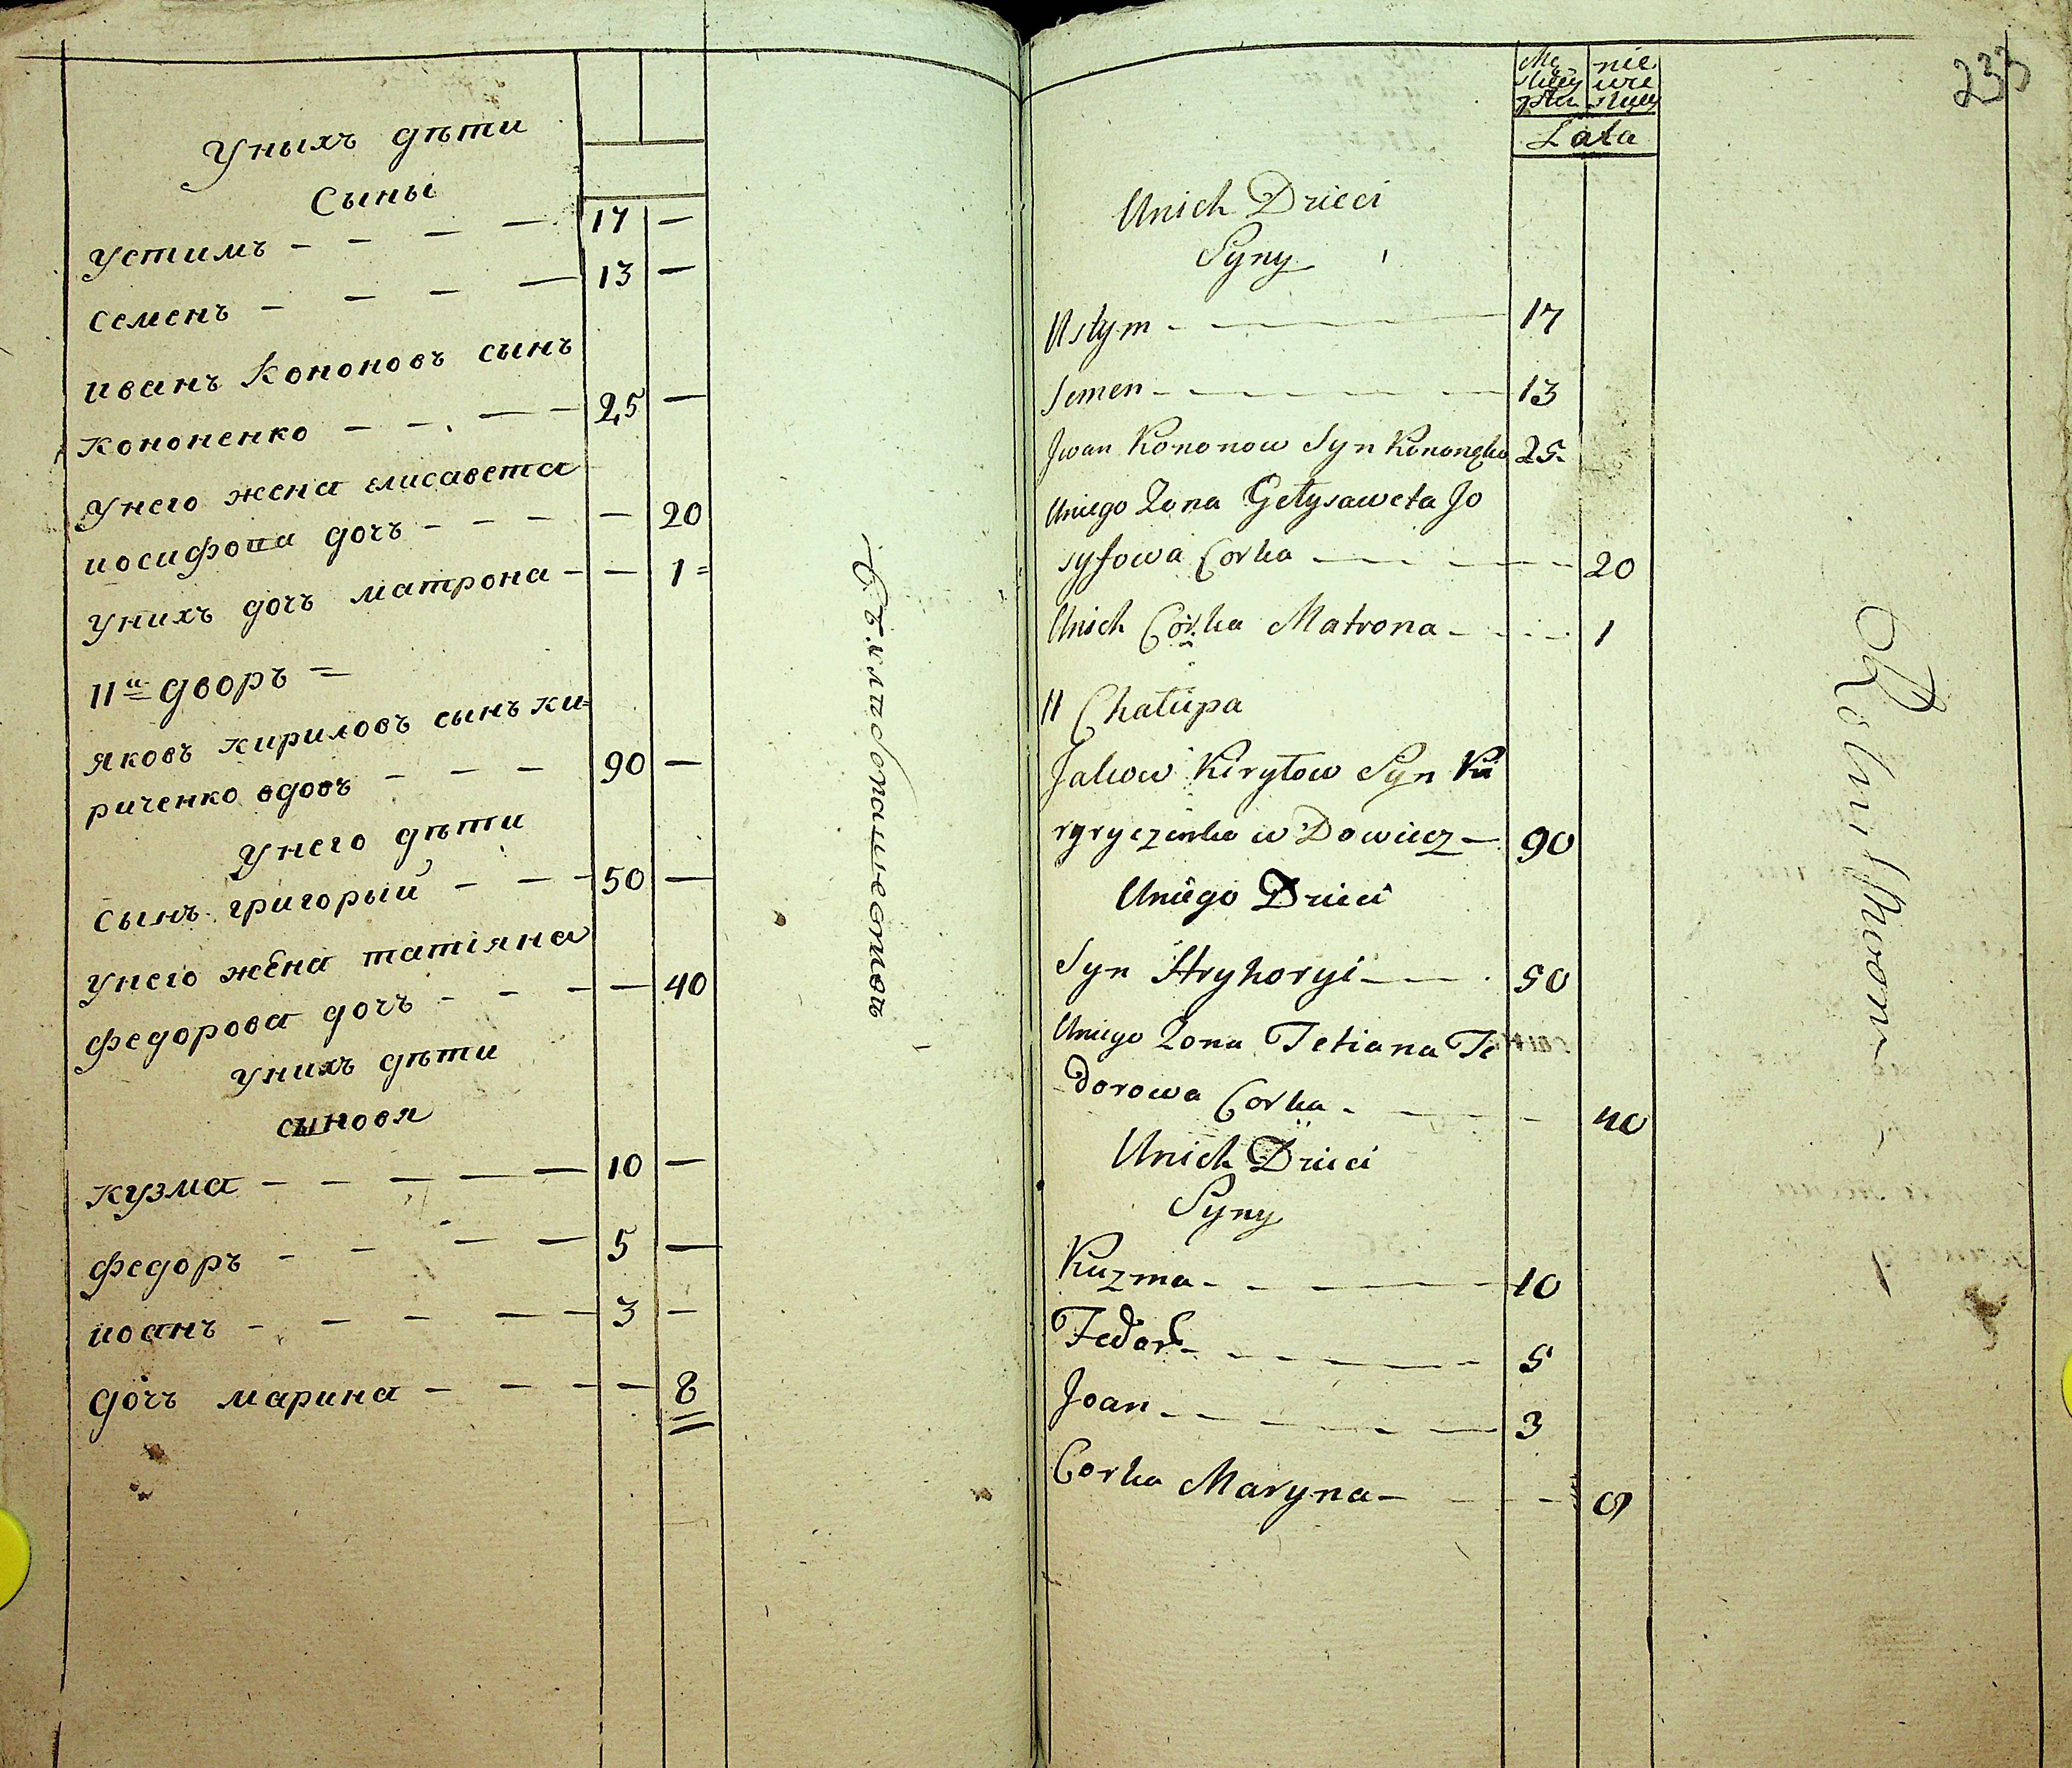 Уныхъ дѣти
Сыны
Устимъ - - - - 17 -
Семенъ - - - - 13 -
иванъ Кононовъ сынъ
Кононенко - - - - 25 -
Унего жена елисавета
иосифова дочъ - - - - 20
Унихъ дочъ матрона - - 1 =
11й дворъ =
яковъ кириловъ сынъ ки=
риченко вдовъ - - - 90 -
Унего дѣти
Сынъ григорый - - - 50 -
Унего жена татіяна
федорова дочъ - - - - - 40
Унихъ дѣти
сыновя
кузма - - - - - 10 -
федоръ - - - - 5 -
иоанъ - - - - - 3 -
дочъ марина - - - - 8
233
nie
wie
Lata
Unich Dzieci
Syny
Ustym - - - - - 17
Semen - - - - - 13
Jwan Kononow Syn Kononęko 25
Uniego Zona Gełysaweta Jo
syfowa Corka - - - - - 20
Unich Corka Matrona - - - - 1
11 Chałupa
Jakow Kiryłow Syn Ki
ryryczenko w Dowiec - 90
Uniego Dzieci
Syn Hryhoryi - - - 50
Uniego Zona Tetiana Te
dorowa Corka - - - - 40
Unich Dzieci
Syny
Kuzma - - - - - 10
Fedor - - - - - 5
Joan - - - - - 3
Corka Maryna - - - 8